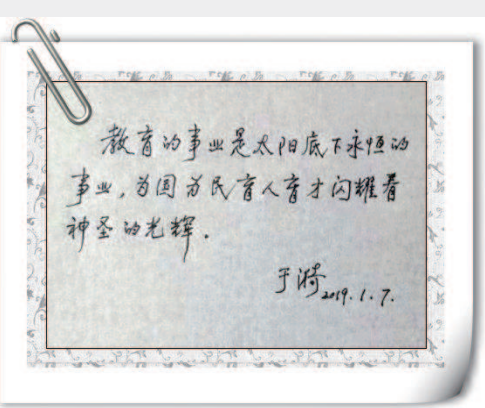 教育的事业是太阳底下永恒的
事业，为国为民育人育才闪耀着
神圣的光辉．
于漪
2019.1.7.